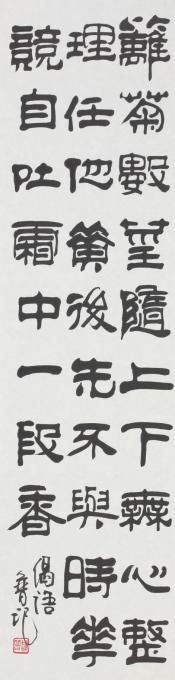 籬菊數莖隨上下無心整
理任他黃後先不與時華
競自吐霜中一段香
偈語